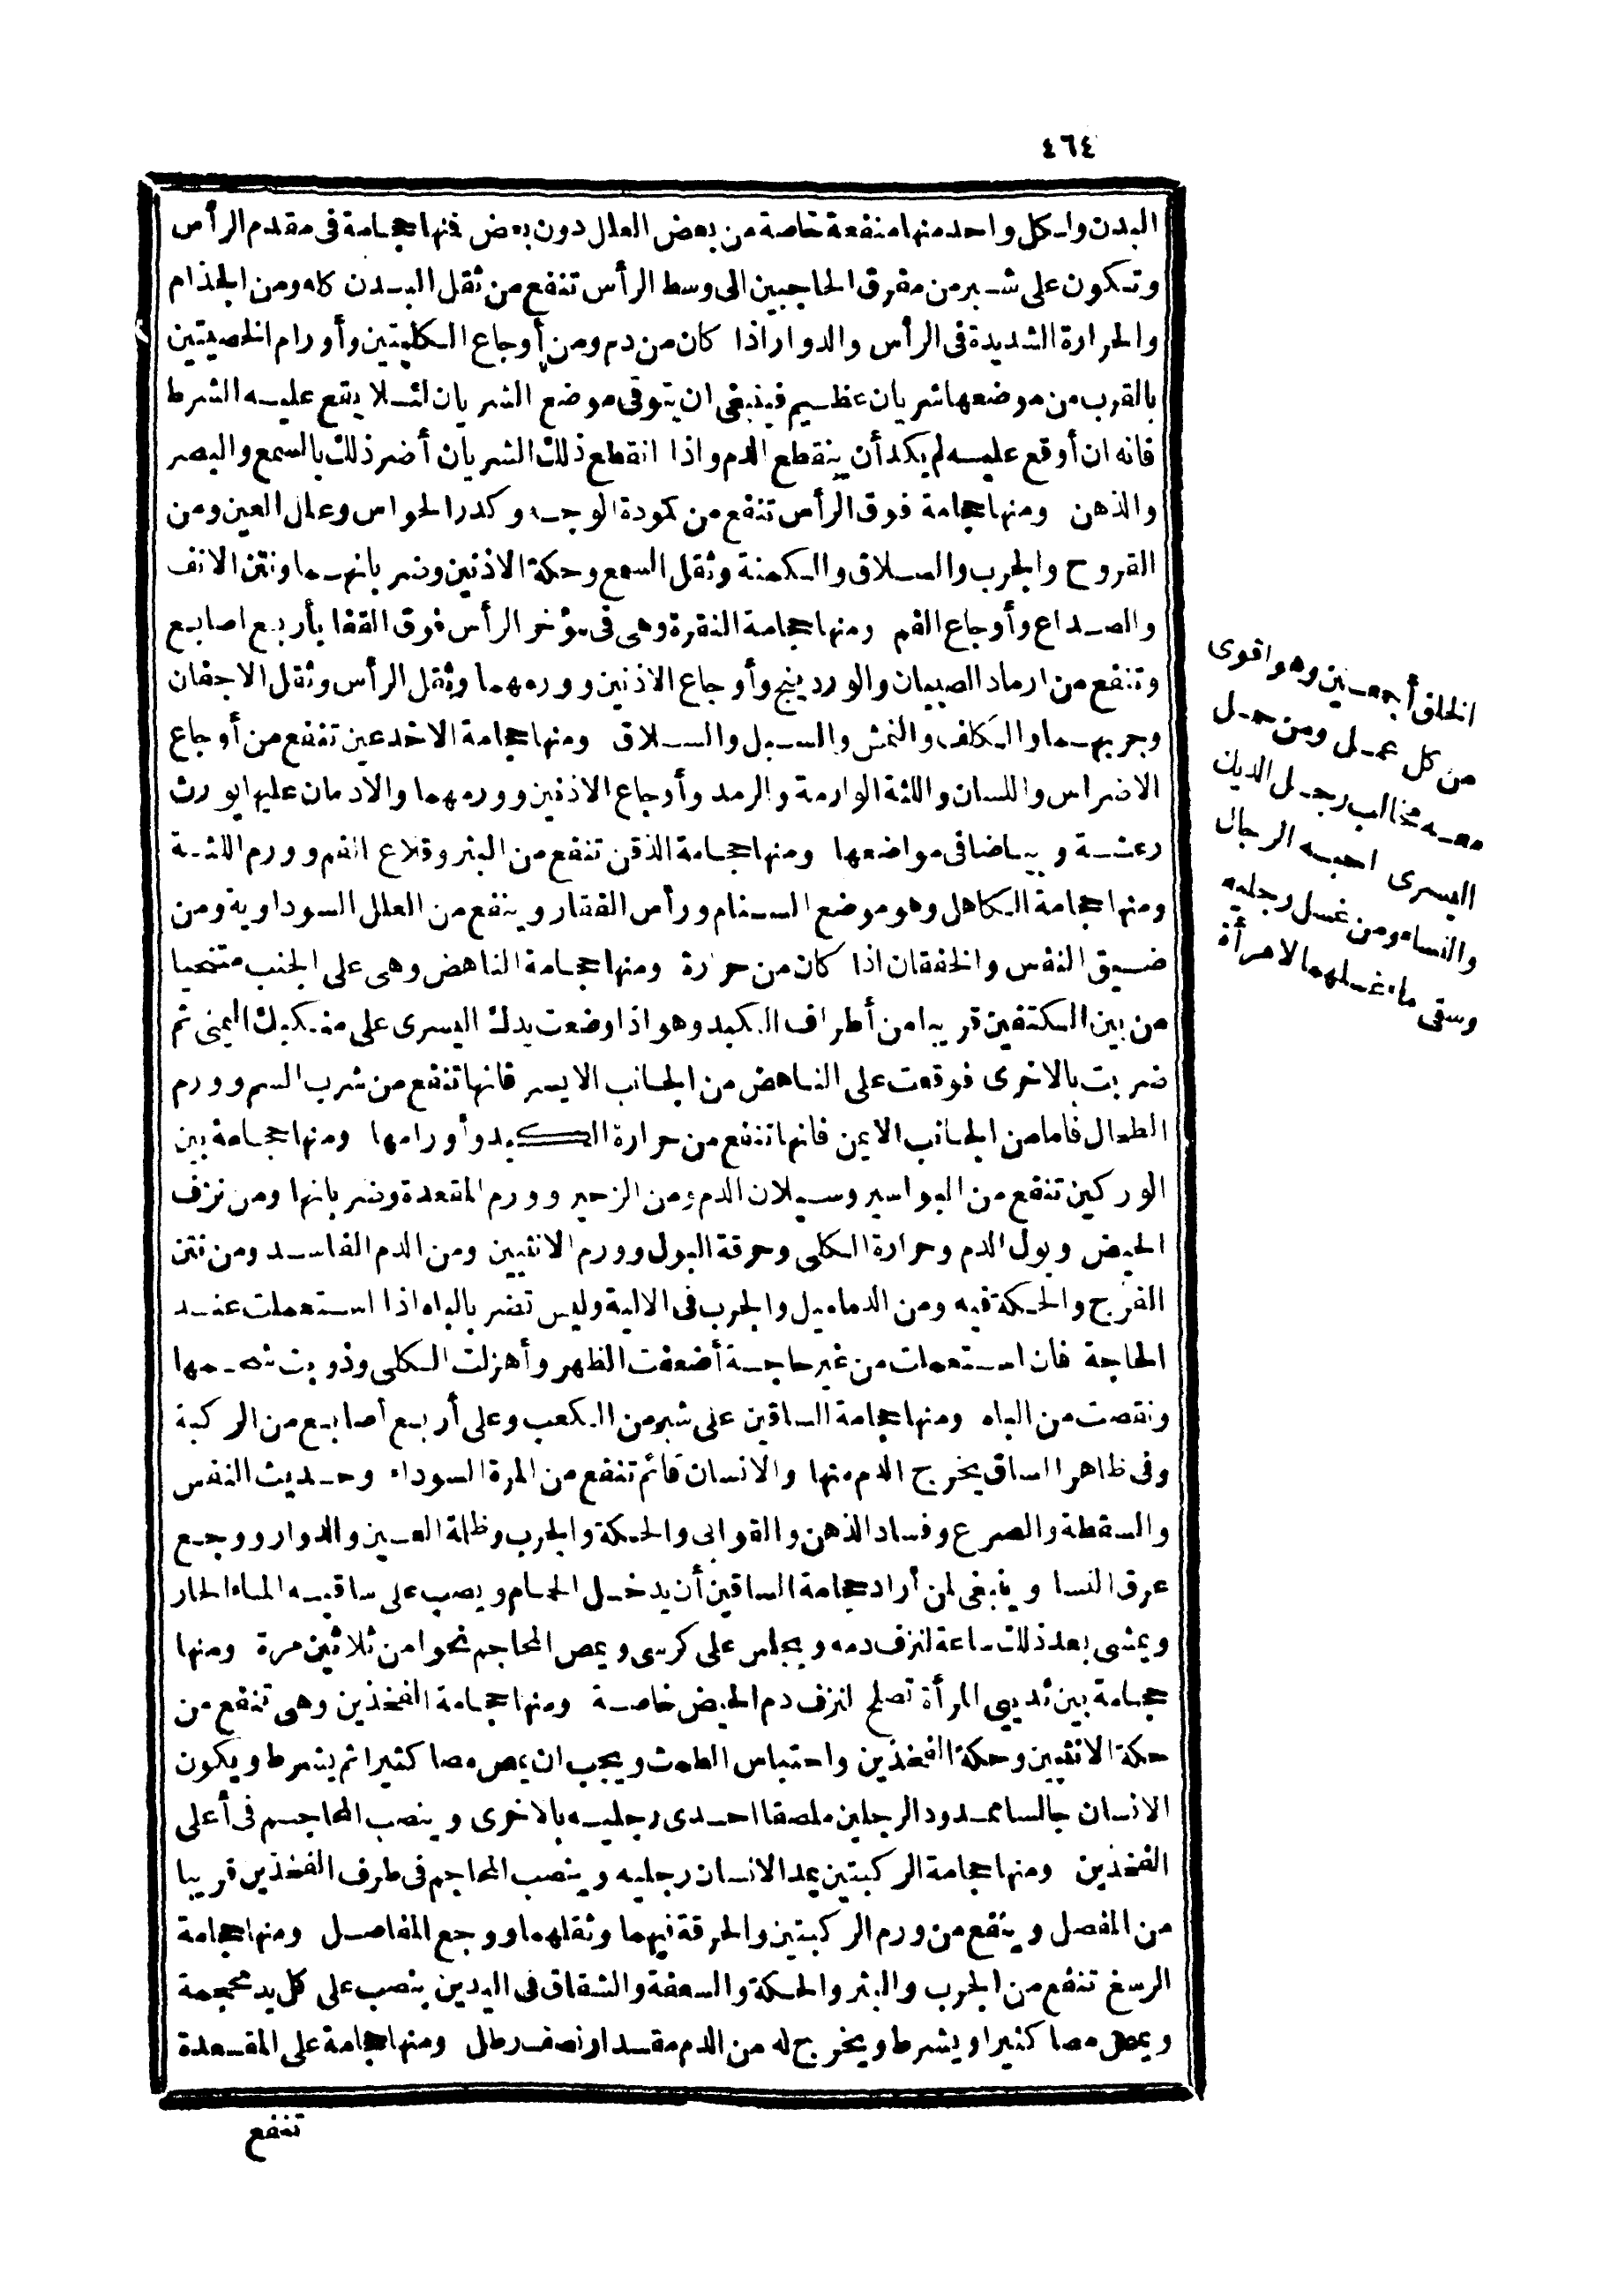 ٤٦٤
البدن ولكل واحد منها منفعة خاصة من بعض العلل دون بعض فمنها حجامة فى مقدم الرأس
وتكون على شبر من مفرق الحاجبين الى وسط الرأس تنفع من ثقل البدن كله ومن الجذام
والحرارة الشديدة فى الرأس والدوار اذا كان من دم ومن أوجاع الكليتين وأورام الخصيتين
بالقرب من موضعها شريان عظيم فينبغى ان يتوقى موضع الشريان لئلا يقع عليه الشرط
فانه ان أوقع عليه لم يكد أن ينقطع الدم واذا انقطع ذلك الشريان أضر ذلك بالسمع والبصر
والذهن ومنها حجامة فوق الرأس تنفع من كمودة الوجه وكدر الحواس وعلل العين ومن
القروح والجرب والسلاق والكمنة وثقل السمع وحكة الاذنين وضربانهما ونتن الانف
والصداع وأوجاع الفم ومنها حجامة النقرة وهى فى مؤخر الرأس فوق القفا بأربع اصابع
وتنفع من ارماد الصبيان والوردينج وأوجاع الاذنين وورمهما وثقل الرأس وثقل الاجفان
وجربهما والكلف والنمش والسبل والسلاق ومنها حجامة الاخدعين تنفع من أوجاع
الاضراس واللسان واللثة الوارمة والرمد وأوجاع الاذنين وورمهما والادمان عليها يورث
رعشة وبياضا فى مواضعها ومنها حجامة الذقن تنفع من البثر وقلاع الفم وورم اللثة
ومنها حجامة الكاهل وهو موضع السنام ورأس الفقار وينفع من العلل السوداوية ومن
ضيق النفس والخفقان اذا كان من حرارة ومنها حجامة الناهض وهى على الجنب متنحيا
من بين الكتفين قريبا من أطراف الكبد وهو اذا وضعت يدك اليسرى على منكبك اليمنى ثم
ضربت بالاخرى فوقعت على الناهض من الجانب الايسر فانها تنفع من شرب السم وورم
الطحال فاما من الجانب الايمن فانها تنفع من حرارة الكبد وأورامها ومنها حجامة بين
الوركين تنفع من البواسير وسيلان الدم ومن الزحير وورم المقعدة وضربانها ومن نزف
الحيض وبول الدم وحرارة الكلى وحرقة البول وورم الانثيين ومن الدم الفاسد ومن نتن
الفرج والحكة فيه ومن الدماميل والجرب فى الالية وليس تضر بالباه اذا استعملت عند
الحاجة فان استعملت من غير حاجة أضعفت الظهر وأهزلت الكلى وذوبت شحمها
ونقصت من الباه ومنها حجامة الساقين على شبر من الكعب وعلى أربع أصابع من الركبة
وفى ظاهر الساق يخرج الدم منها والانسان قائم تنفع من المرة السوداء وحديث النفس
والسقطة والصرع وفساد الذهن والقوابى والحكة والجرب وظلمة العين والدوار ووجع
عرق النسا وينبغى لمن أراد حجامة الساقين أن يدخل الحمام ويصب على ساقيه الماء الحار
ويمشى بعد ذلك ساعة لنزف دمه ويجلس على كرسى ويمص المحاجم نحوا من ثلاثين مرة ومنها
حجامة بين ثديى المرأة تصلح لنزف دم الحيض خاصة ومنها حجامة الفخذين وهى تنفع من
حكة الانثيين وحكة الفخذين واحتباس الطمث ويجب ان يمص مصا كثيرا ثم يشرط ويكون
الانسان جالسا ممدود الرجلين ملصقا احدى رجليه بالاخرى وينصب المحاجم فى أعلى
الفخذين ومنها حجامة الركبتين يمد الانسان رجليه وينصب المحاجم فى طرف الفخذين قريبا
من المفصل وينفع من ورم الركبتين والحرقة فيهما وثقلهما ووجع المفاصل ومنها حجامة
الرسغ تنفع من الجرب والبثر والحكة والسعفة والشقاق فى اليدين ينصب على كل يد محجمة
ويمص مصا كثيرا ويشرط ويخرج له من الدم مقدار نصف رطل ومنها حجامة على المقعدة
تنفع
الخلق أجمعين وهو اقوى
من كل عمل ومن حمل
معه مخالب رجل الديك
اليسرى احبه الرجال
والنساء ومن غسل رجليه
وسقى ماء غسلهما لامرأة